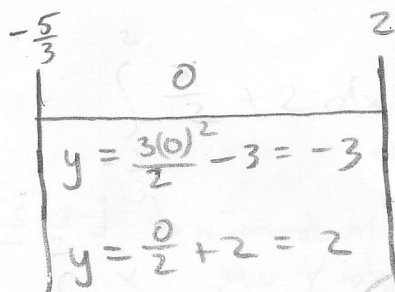 -5/3 2
0
y = 3(0)²/2 - 3 = -3
y = 0/2 + 2 = 2